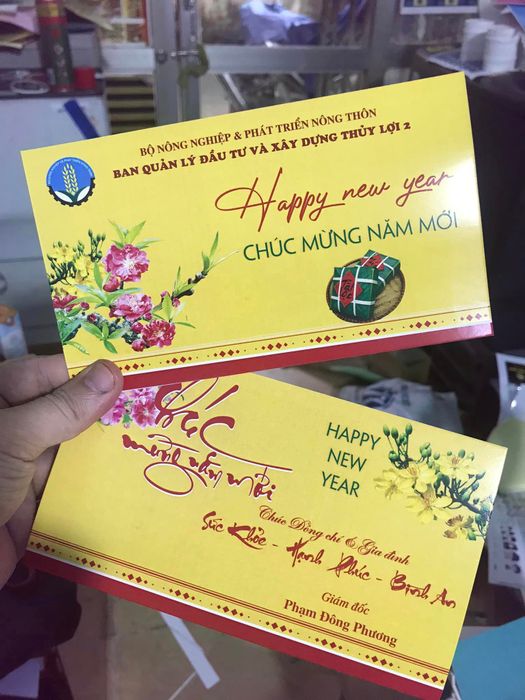 BỘ NÔNG NGHIỆP & PHÁT TRIỂN NÔNG THÔN
BAN QUẢN LÝ ĐẦU TƯ VÀ XÂY DỰNG THỦY LỢI 2
Happy new year
CHÚC MỪNG NĂM MỚI
Chúc
mừng năm mới
HAPPY
NEW
YEAR
Chúc Đồng chí & Gia đình
Sức Khỏe - Hạnh Phúc - Bình An
Giám đốc
Phạm Đông Phương